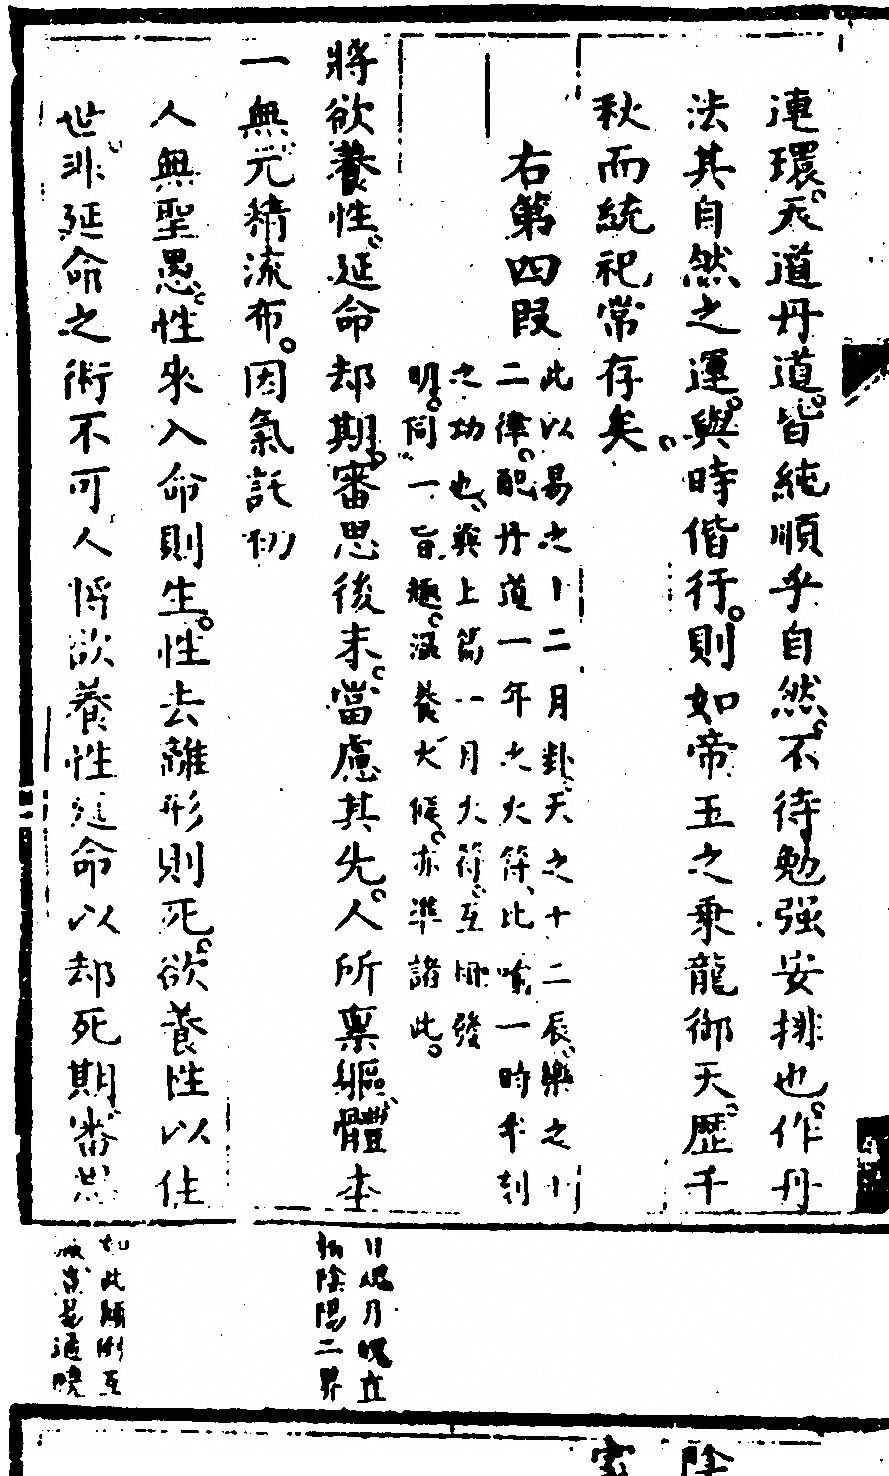 連環天道丹道皆純順乎自然不待勉强安排也作丹
法其自然之運與時偕行則如帝王之乗龍御天歷千
秋而統祀常存矣
右第四段
此以易之十二月卦天之十二辰樂之十
二律配丹道一年之火符比喻一時半刻
之功也與上篇一月火符互相發
明同一旨趣溫養火候亦準諸此
將欲養性延命却期審思後末當慮其先人所禀軀體本
一無元精流布因氣託初
人無聖愚性來入命則生性去離形則死欲養性以住
世非延命之術不可人將欲養性延命以却死期審思
日魂月魄立
陰陽二界
如此顛倒互
通曉
陰